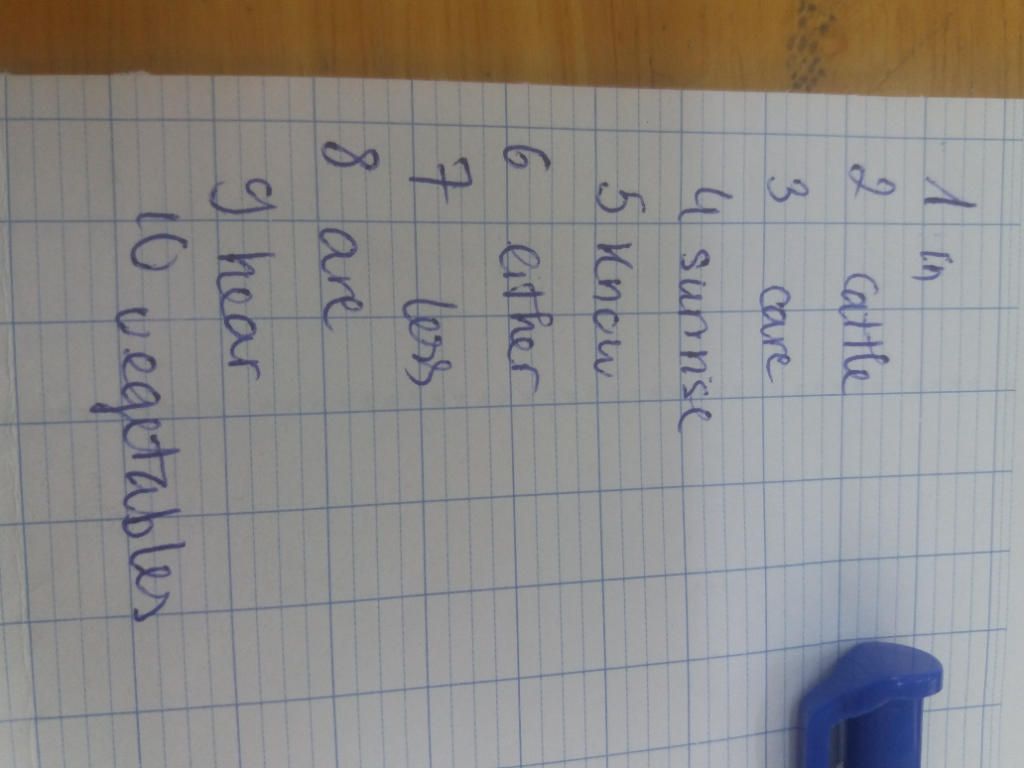 1 in
2 cattle
3 care
4 sunrise
5 know
6 either
7 less
8 are
9 hear
10 vegetables